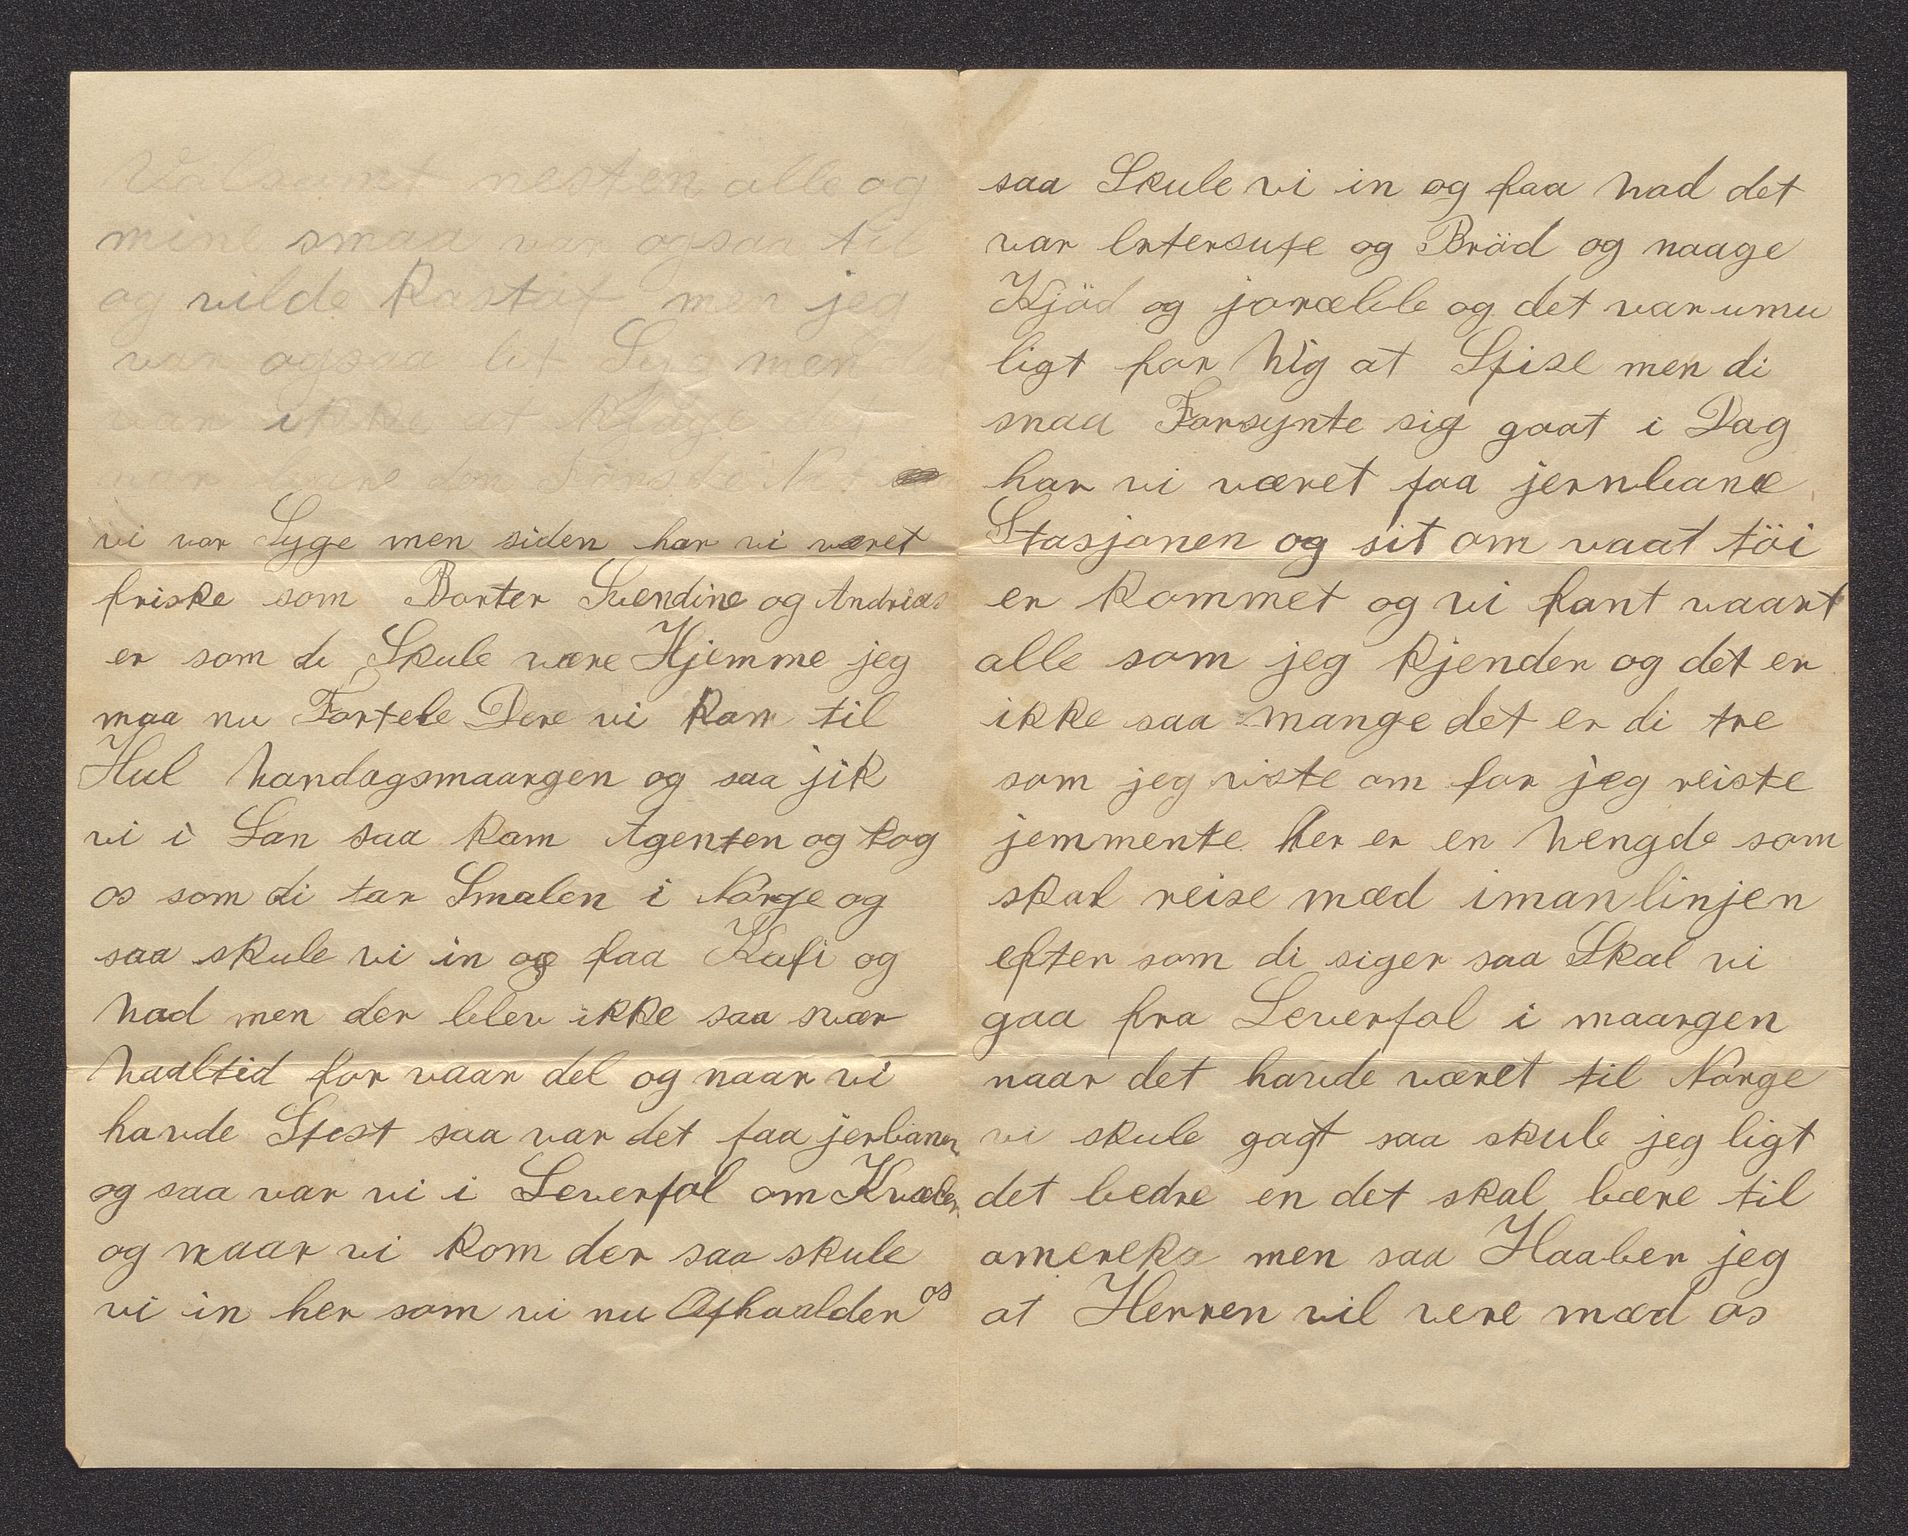 Valsomt nesten alle og
mine smaa var ogsaa til
og vilde Kastaf men jeg
var ogsaa lit Syg men det
var ikke at Klage det
var bare den Torsda Nat
vi var Syge men siden har vi været
friske som Borter Svendine og Andrias
er som de Skule være Hjemme jeg
maa nu Fortele Dere vi kom til
Hul Mandagsmaargen og saa jik
vi i Lan saa kom Agenten og tog
os som di tar Smalen i Norge og
saa skule vi in og faa Kafi og
Mad men der blev ikke saa svær
Maaltid for vaar del og naar vi
havde Spest saa var det paa jerbanen
og saa var vi i Leverpol om Kvælen
og naar vi kom der saa skule
vi in her som vi nu Ophaalder os
saa Skule vi in og faa Mad det
var Ertersupe og Bröd og naage
Kjöd og joræble og det var umu
ligt for Mig at Spise men di
smaa Forsynte sig gaat i Dag
har vi været paa jernbane
Stasjonen og sit om vaat töi
er kommet og vi fant vaart
alle som jeg kjender og det er
ikke saa mange det er di tre
som jeg viste om for jeg reiste
jemmente her er en Mengde som
skal reise mæd iman linjen
efter som di siger saa Skal vi
gaa fra Leverpol i maargen
naar det havde været til Norge
vi skule gaat saa skule jeg ligt
det bedre en det skal bære til
amereka men saa Haaber jeg
at Herren vil vere mæd os